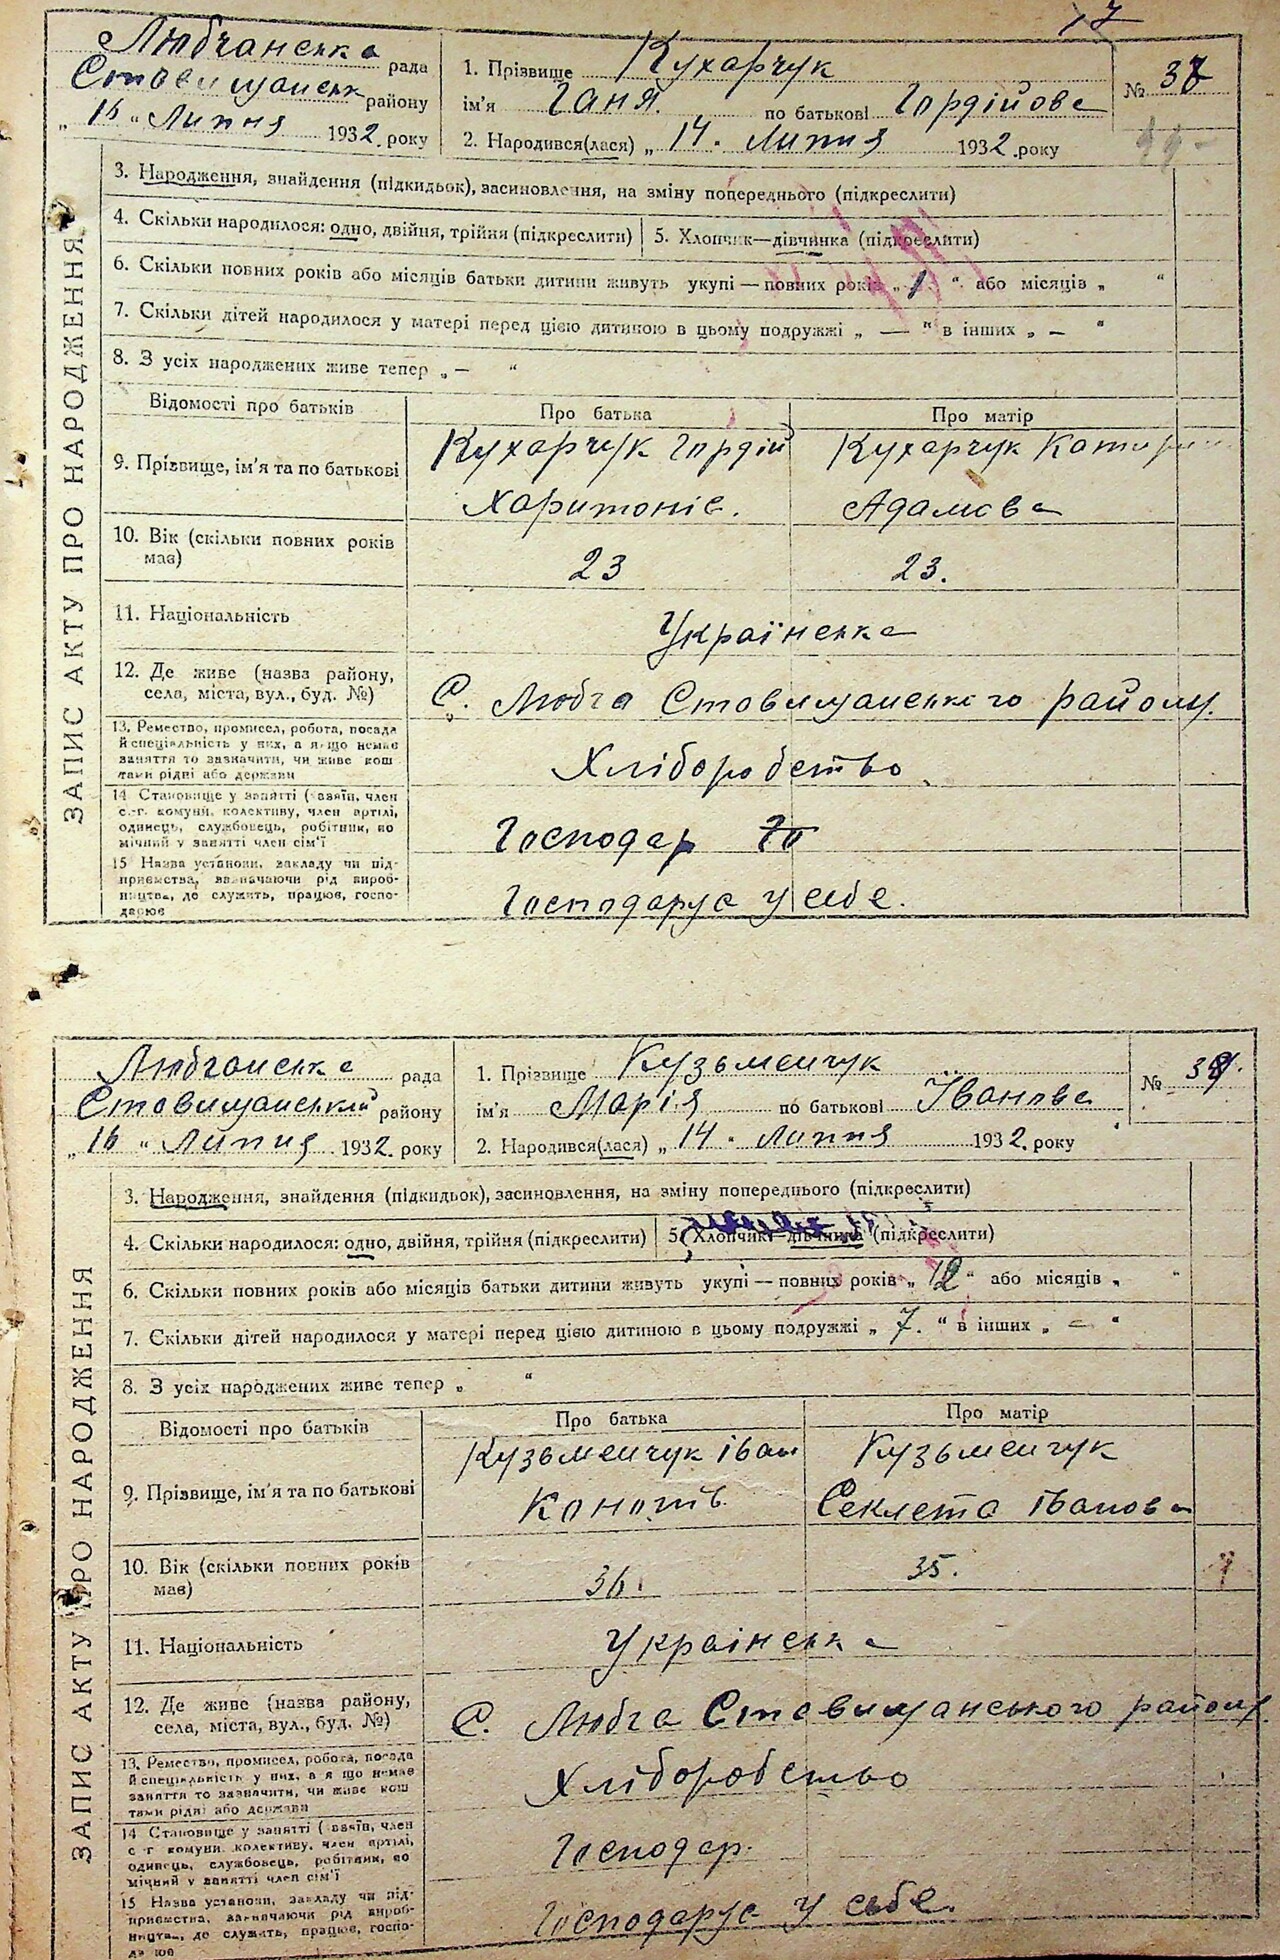 17
Любчанська рада
Ставищанськ району
„ 16 „ Липня 1932. року
1. Прізвище Кухарчук
ім'я Ганя. по батькові Гордійова
2. Народився(лася) „ 14. Липня 1932. року
№ 38
ЗАПИС АКТУ ПРО НАРОДЖЕННЯ
3. Народження, знайдення (підкидьок), засиновлення, на зміну попереднього (підкреслити)
4. Скільки народилося: одно, двійня, трійня (підкреслити)
5. Хлопчик—дівчинка (підкреслити)
6. Скільки повних років або місяців батьки дитини живуть укупі — повних років „ 1 “ або місяців „ “
7. Скільки дітей народилося у матері перед цією дитиною в цьому подружжі „ — “ в інших „ — “
8. З усіх народжених живе тепер „ — “
Відомості про батьків
Про батька
Про матір
9. Прізвище, ім'я та по батькові
Кухарчук Гордій
Харитонів.
Кухарчук Катерин
Адамова
10. Вік (скільки повних років
має)
23
23.
11. Національність
Українська
12. Де живе (назва району,
села, міста, вул., буд. №)
С. Любча Ставищанського району.
13. Ремество, промисел, робота, посада
й спеціальність у них, а якщо немає
заняття то зазначити, чи живе кош
тами рідні або держави
Хліборобство
14 Становище у занятті (хазяїн, член
с.-г. комуни, колективу, член артілі,
одинець, службовець, робітник, по
мічний у занятті член сім'ї
Господар
15 Назва установи, закладу чи під-
приємства, зазначаючи рід вироб-
ництва, де служить, працює, госпо-
дарює
Господарує у себе.
Любчанська рада
Ставищанський району
„ 16 „ Липня 1932. року
1. Прізвище Кузьменчук
ім'я Марія по батькові Іванова
2. Народився(лася) „ 14 „ Липня 1932. року
№ 39.
ЗАПИС АКТУ ПРО НАРОДЖЕННЯ
3. Народження, знайдення (підкидьок), засиновлення, на зміну попереднього (підкреслити)
4. Скільки народилося: одно, двійня, трійня (підкреслити)
5. Хлопчик—дівчинка (підкреслити)
6. Скільки повних років або місяців батьки дитини живуть укупі — повних років „ 12 “ або місяців „ “
7. Скільки дітей народилося у матері перед цією дитиною в цьому подружжі „ 7. “ в інших „ — “
8. З усіх народжених живе тепер „ “
Відомості про батьків
Про батька
Про матір
9. Прізвище, ім'я та по батькові
Кузьменчук Іван
Кузьменчук
Секлета Іванова
10. Вік (скільки повних років
має)
36.
35.
11. Національність
Українська
12. Де живе (назва району,
села, міста, вул., буд. №)
С. Любча Ставищанського району.
13. Ремество, промисел, робота, посада
й спеціальність у них, а якщо немає
заняття то зазначити, чи живе кош
тами рідні або держава
Хліборобство
14 Становище у занятті (хазяїн, член
с г комуни, колективу, член артілі,
одинець, службовець, робітник, по
мічний у занятті член сім'ї
Господар.
15 Назва установи, закладу чи під-
приємства, зазначаючи рід вироб-
ництва, де служить, працює, госпо-
дарює
Господарує у себе.